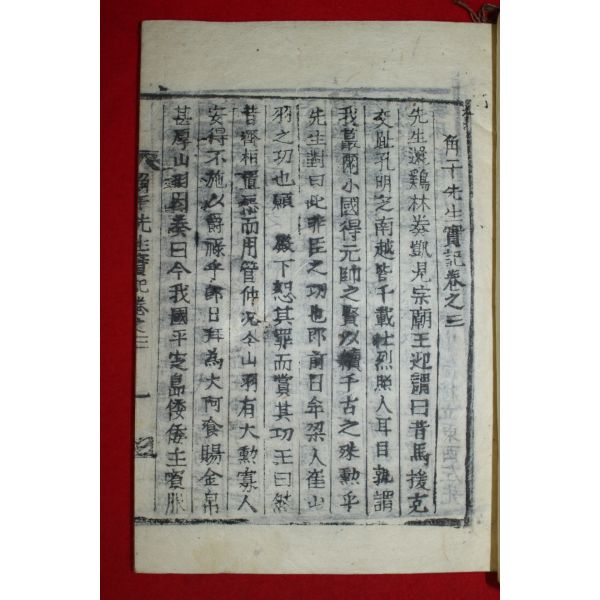 角干先生實記卷之三
先生還鷄林奏凱見宗廟王迎謂曰昔馬援克
交趾孔明芝南越皆千載壯烈照人耳目孰謂
我蕞爾小國得元帥之賢以續千古之殊勳乎
先生對曰此非臣之功也卽前日年梁人崔山
羽之功也願 殿下恕其罪而賞其功王曰然
昔齊相管仲況今山羽有大勳寡人
安得不施以爵祿乎卽日拜為大阿飡賜金帛
甚厚山羽因奏曰今我國平定島倭倭王
角干先生實記卷之三
一